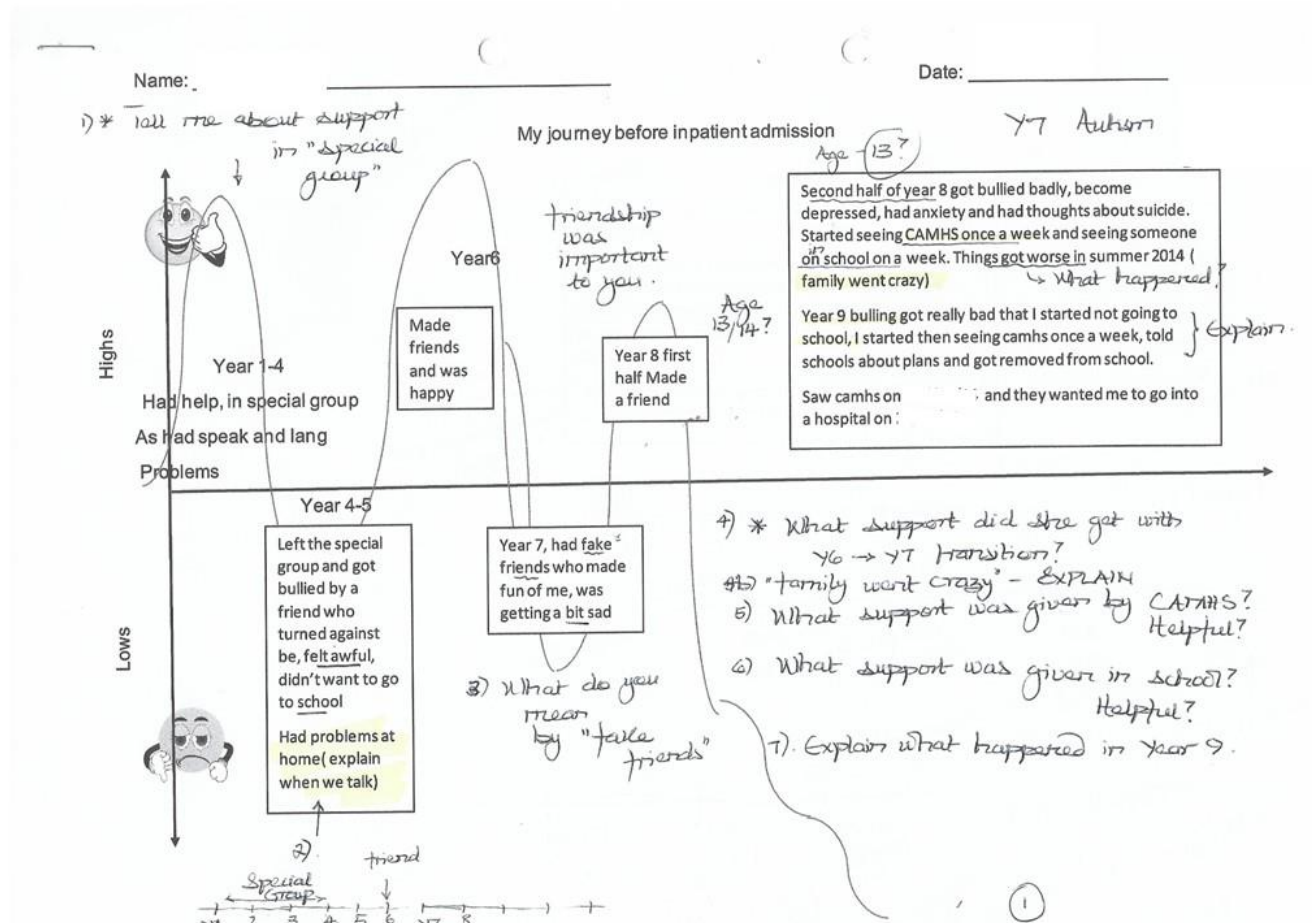 Name:
Date:
1) * Tell me about support
in "special
group"
My journey before inpatient admission
Y7 Autism
Age - 13?
Highs
Lows
Year 1-4
Had help, in special group
As had speak and lang
Problems
Year 4-5
Left the special
group and got
bullied by a
friend who
turned against
be, felt awful,
didn't want to go
to school
Had problems at
home( explain
when we talk)
2)
Year6
Made
friends
and was
happy
friendship
was
important
to you.
Year 7, had fake
friends who made
fun of me, was
getting a bit sad
3) What do you
mean
by "fake
friends"
Year 8 first
half Made
a friend
Age
13/14?
Second half of year 8 got bullied badly, become
depressed, had anxiety and had thoughts about suicide.
Started seeing CAMHS once a week and seeing someone
in
on school on a week. Things got worse in summer 2014 (
family went crazy)
↳ What happened?
Year 9 bulling got really bad that I started not going to
school, I started then seeing camhs once a week, told
schools about plans and got removed from school.
} Explain.
Saw camhs on : and they wanted me to go into
a hospital on :
4) * What support did she get with
Y6 → Y7 transition?
"family went crazy" - EXPLAIN
5) What support was given by CAMHS?
Helpful?
6) What support was given in school?
Helpful?
7). Explain what happened in Year 9.
Special
Group
friend
2 3 4 5 6 Y7 8
1